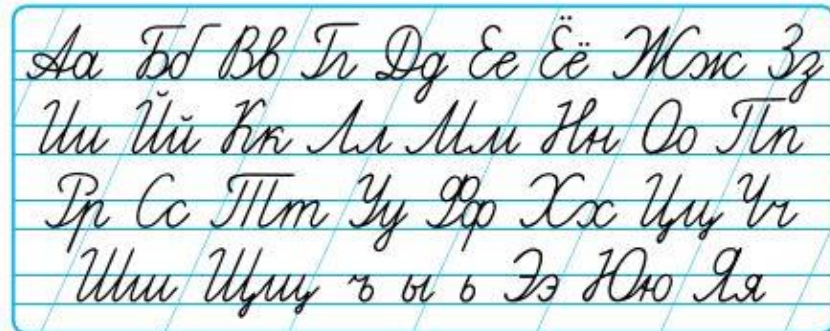 Аа Бб Вв Гг Дд Ее Ёё Жж Зз
Ии Йй Кк Лл Мм Нн Оо Пп
Рр Сс Тт Уу Фф Хх Цц Чч
Шш Щщ ъ ы ь Ээ Юю Яя